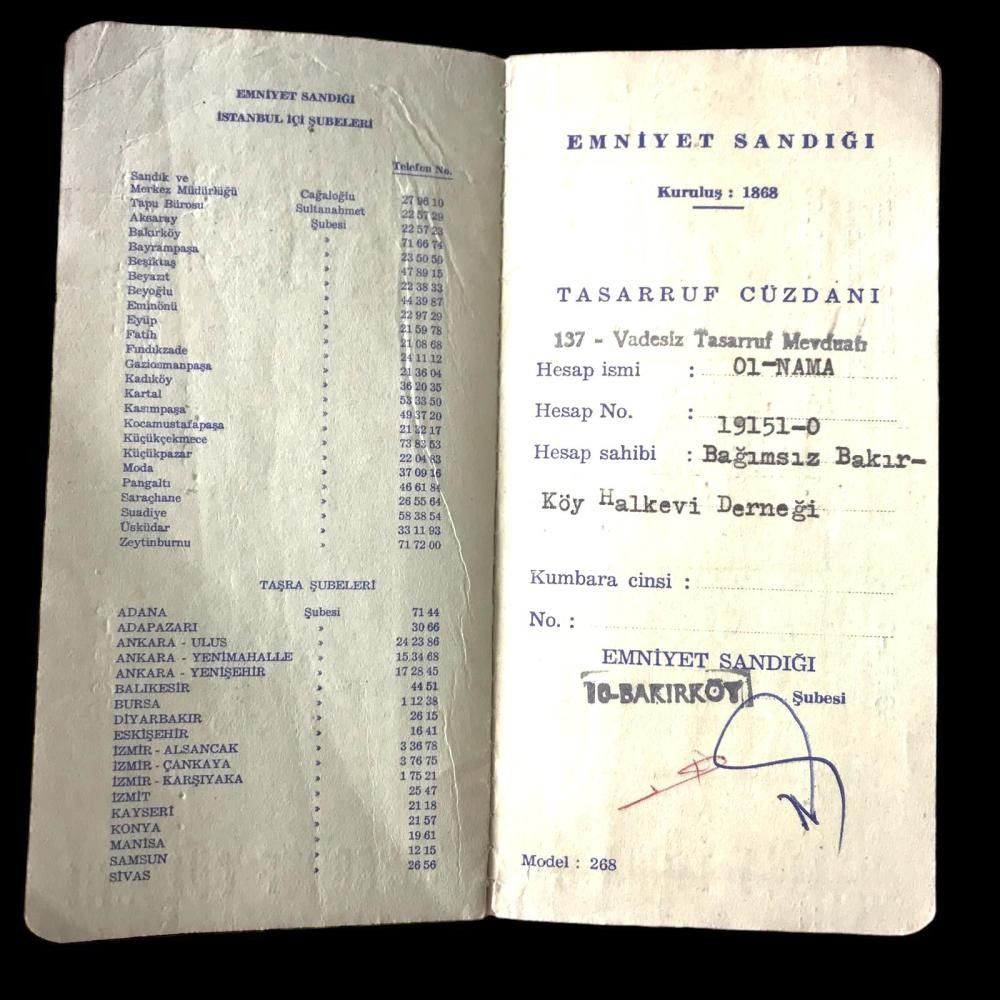 EMNİYET SANDIĞI
İSTANBUL İÇİ ŞUBELERİ
Telefon No.
Sandık ve
Merkez Müdürlüğü Cağaloğlu 27 96 10
Tapu Bürosu Sultanahmet 22 57 29
Aksaray Şubesi 22 57 23
Bakırköy » 71 66 74
Bayrampaşa » 23 50 50
Beşiktaş » 47 89 15
Beyazıt » 22 38 33
Beyoğlu » 44 39 87
Eminönü » 22 97 29
Eyüp » 21 59 78
Fatih » 21 08 68
Fındıkzade » 24 11 12
Gaziosmanpaşa » 21 36 04
Kadıköy » 36 20 35
Kartal » 53 33 50
Kasımpaşa » 49 37 20
Kocamustafapaşa » 21 22 17
Küçükçekmece » 73 83 53
Küçükpazar » 22 04 83
Moda » 37 09 16
Pangaltı » 46 61 84
Saraçhane » 26 55 64
Suadiye » 58 38 54
Üsküdar » 33 11 93
Zeytinburnu » 71 72 00
TAŞRA ŞUBELERİ
ADANA Şubesi 71 44
ADAPAZARI » 30 66
ANKARA - ULUS » 24 23 86
ANKARA - YENİMAHALLE » 15 34 68
ANKARA - YENİŞEHİR » 17 28 45
BALIKESİR » 44 51
BURSA » 1 12 38
DİYARBAKIR » 26 15
ESKİŞEHİR » 16 41
İZMİR - ALSANCAK » 3 36 78
İZMİR - ÇANKAYA » 3 76 75
İZMİR - KARŞIYAKA » 1 75 21
İZMİT » 25 47
KAYSERİ » 21 18
KONYA » 21 57
MANİSA » 19 61
SAMSUN » 12 15
SİVAS » 26 56
EMNİYET SANDIĞI
Kuruluş : 1868
TASARRUF CÜZDANI
137 - Vadesiz Tasarruf Mevduatı
Hesap ismi : 01-NAMA
Hesap No. : 19151-0
Hesap sahibi : Bağımsız Bakır-
Köy Halkevi Derneği
Kumbara cinsi :
No. :
EMNİYET SANDIĞI
10-BAKIRKÖY Şubesi
Model : 268